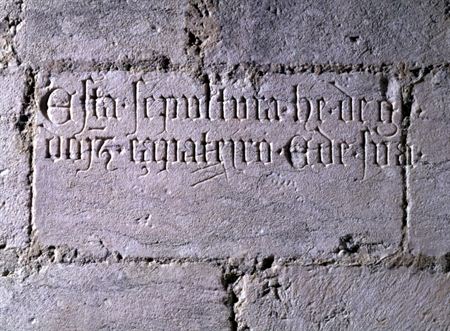 Esta·sepultura·he·de g
oōz·çapateiro·E de·sua